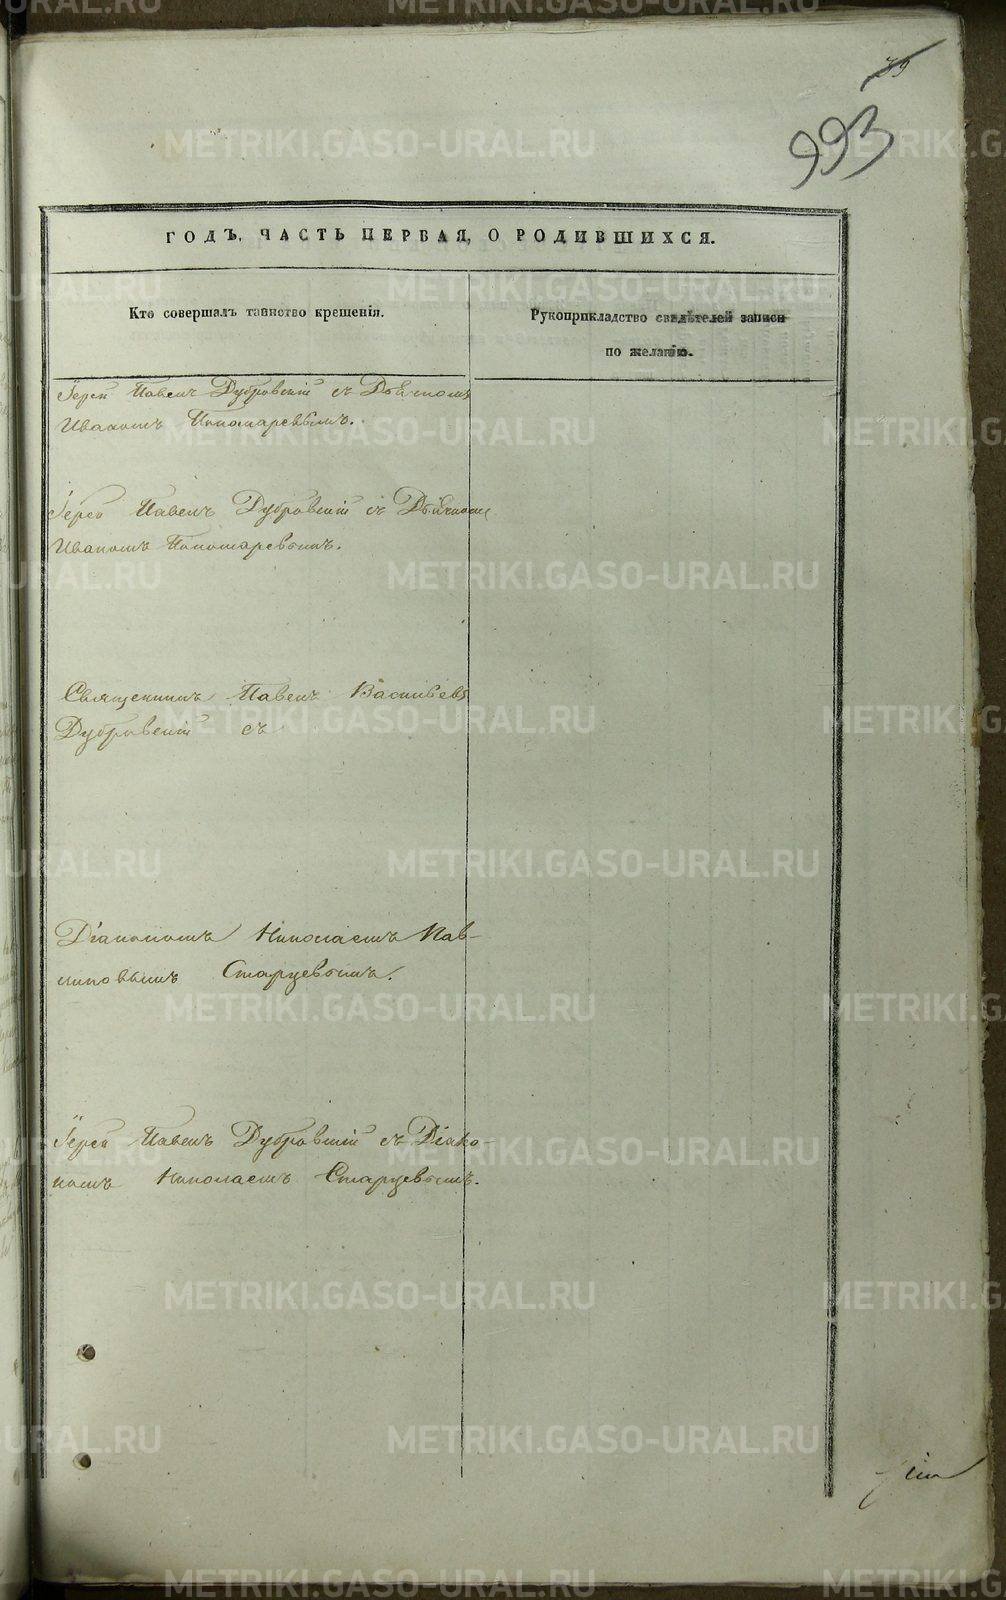 993
ГОДЪ, ЧАСТЬ ПЕРВАЯ, О РОДИВШИХСЯ.
Кто совершалъ таинство крещенія.
Рукоприкладство свидѣтелей записи
по желанію.
Іерей Павелъ Дубровскій съ Дьячкомъ
Иваномъ Пономаревымъ.
Іерей Павелъ Дубровскій съ Дьячкомъ
Иваномъ Пономаревымъ.
Священникъ Павелъ Васильевъ
Дубровскій съ
Діакономъ Николаемъ Пав-
линовымъ Старцевымъ.
Іерей Павелъ Дубровскій съ Діако-
номъ Николаемъ Старцевымъ.
METRIKI.GASO-URAL.RU